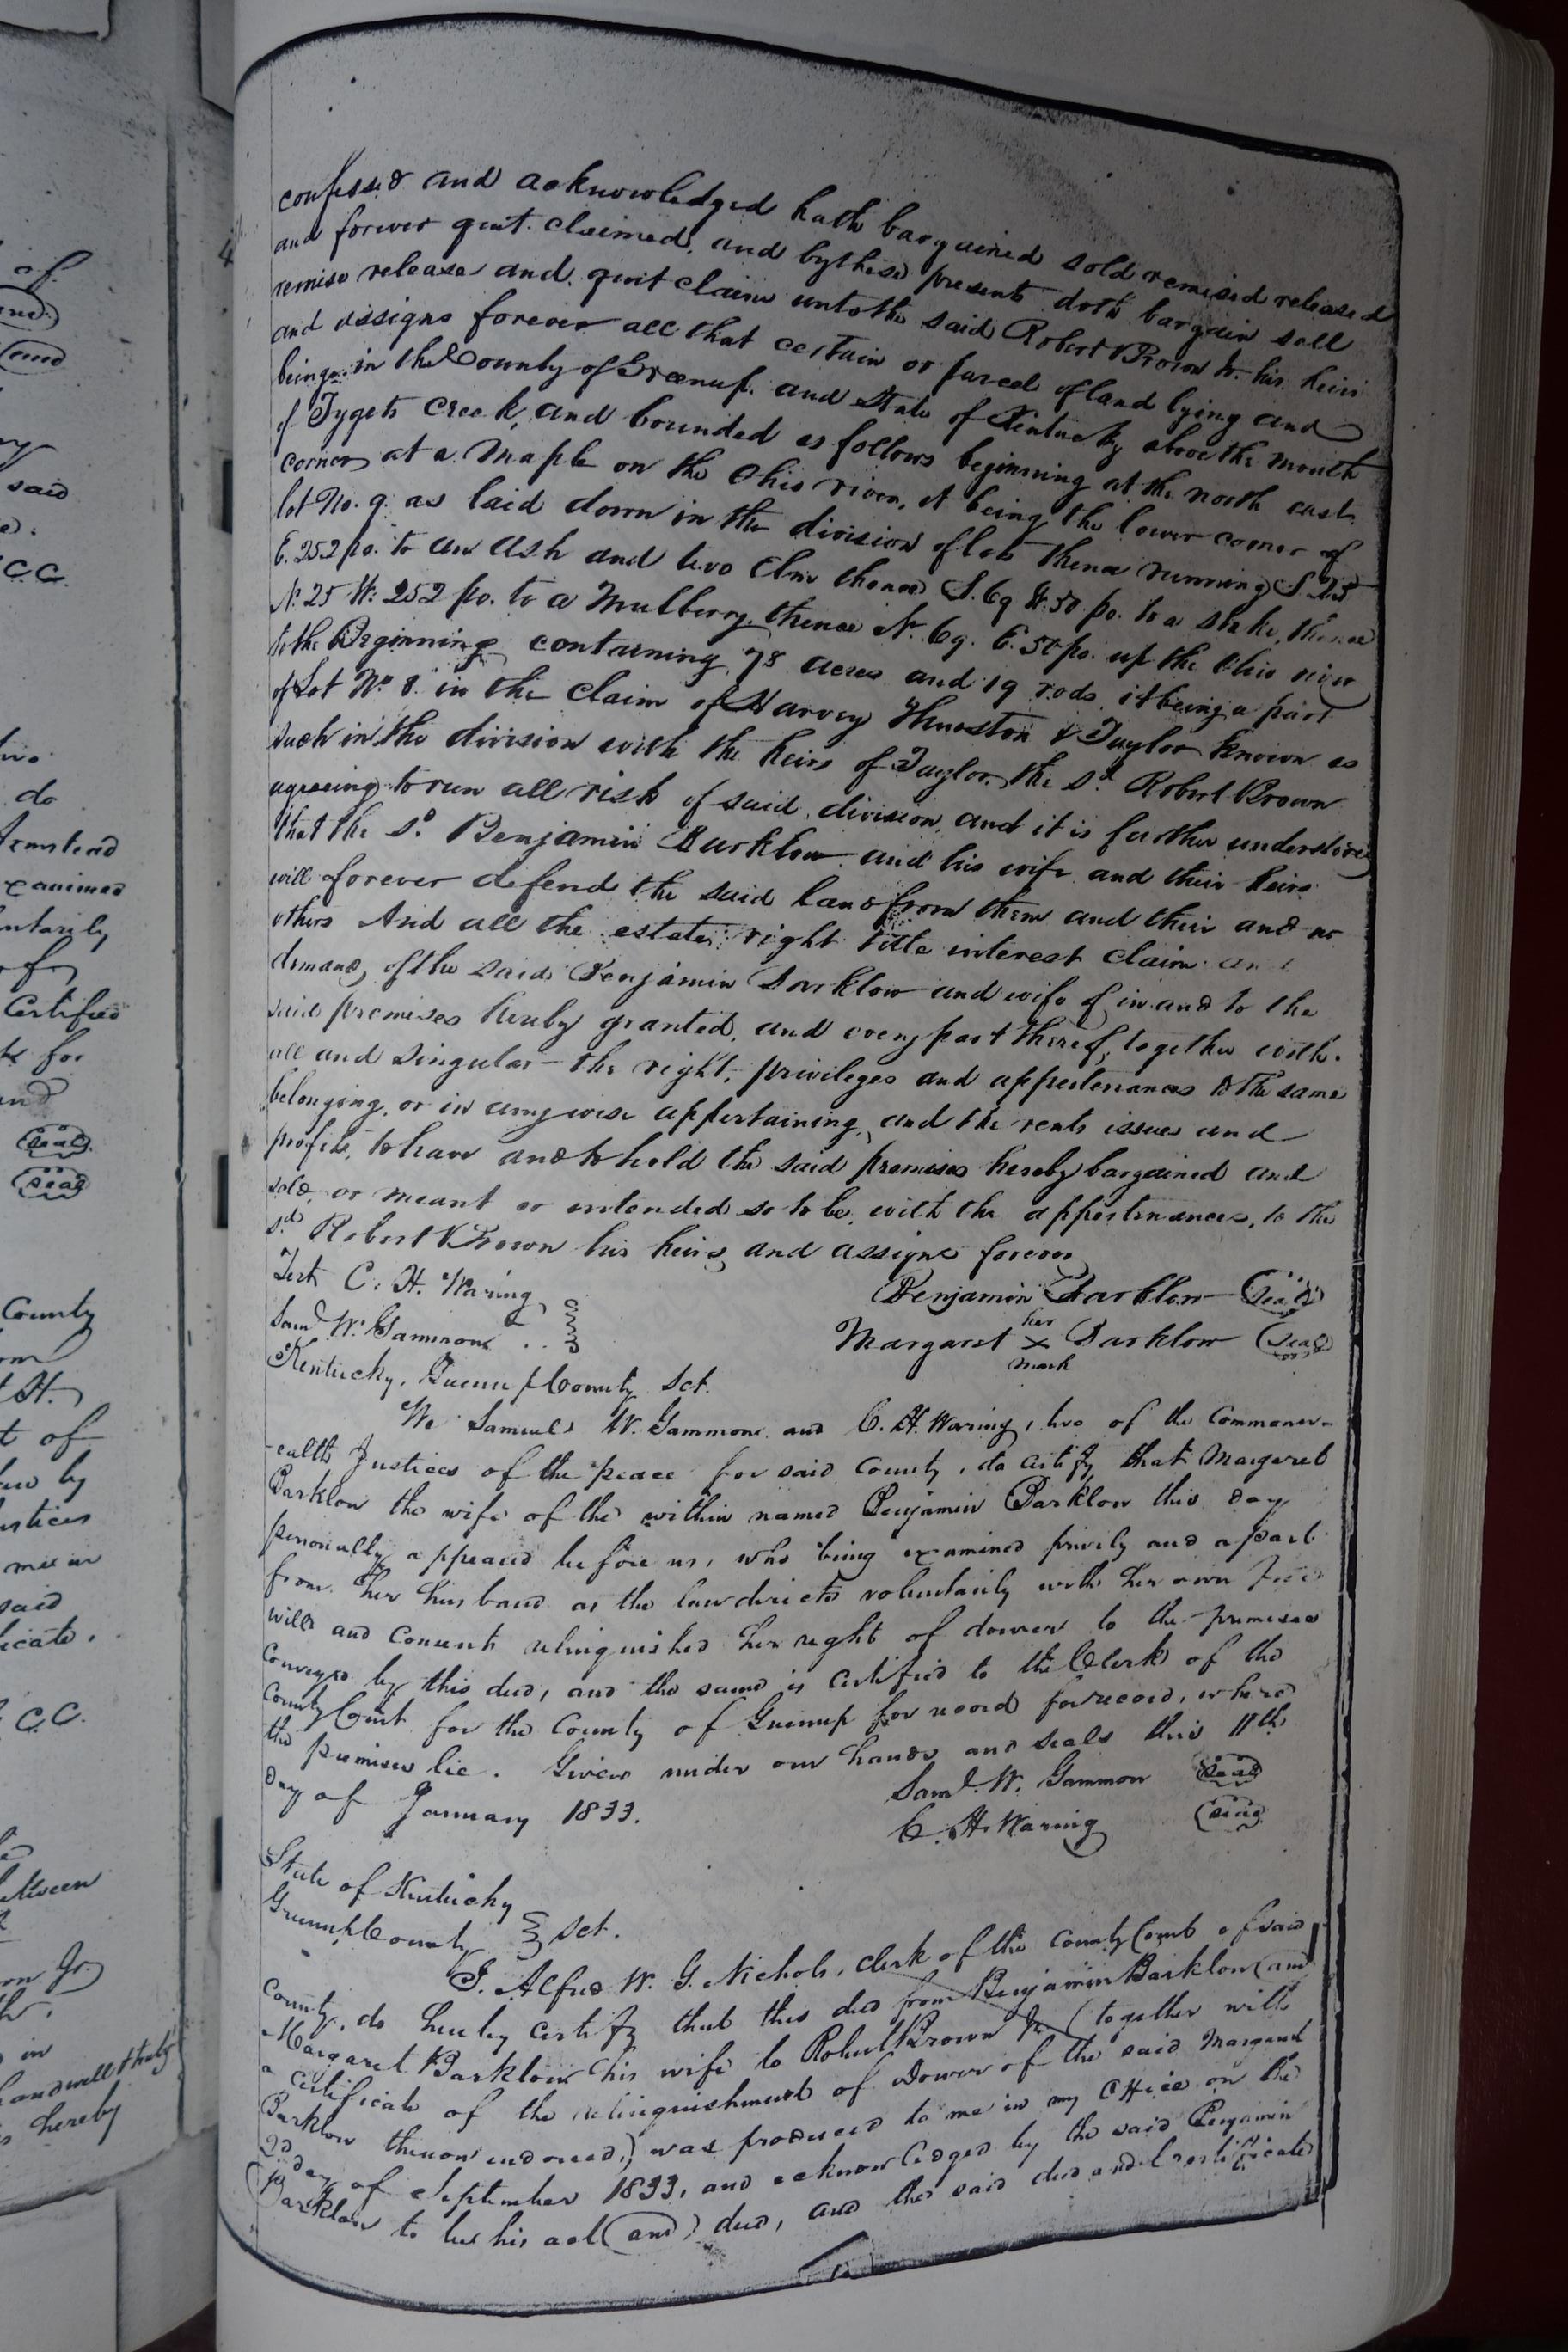 confessed and acknowledged hath bargained sold remised released
and forever quit claimed, and by these presents doth bargain sell
remise release and quit claim unto the said Robert Brown Jr. his heirs
and assigns forever all that certain or parcel of land lying and
being in the County of Greenup and State of Kentucky above the mouth
of Tygets Creek, and bounded as follows beginning at the north east
corner at a Maple on the Ohio river, it being the lower corner of
lot No. 9. as laid down in the division of lots thence running S 25
E. 252 po. to an ash and two Elm thence S. 69 W. 50 po. to a stake, thence
N. 25 W. 252 po. to a Mulberry, thence N. 69. E. 50 po. up the Ohio river
to the Beginning containing 78 acres and 19 rods, it being a part
of Lot No 8. in the claim of Harvey Thurston & Taylor known as
such in the division with the heirs of Taylor, the sd. Robert Brown
agreeing to run all risk of said division, and it is further understood
that the sd. Benjamin Barklow and his wife and their heirs
will forever defend the said land from them and their and no
others And all the estate, right title interest claim and
demand, of the said Benjamin Barklow and wife of in and to the
said premises hereby granted, and every part thereof, together with
all and singular the right, privileges and appertenances to the same
belonging, or in anywise appertaining, and the rents issues and
profits, to have and to hold the said premises hereby bargained and
sold, or meant or intended so to be, with the appertenances, to the
sd. Robert Brown his heirs and assigns forever
Test C. H. Waring
Benjamin Barklow (Seal)
Saml W. Gammon
Margaret her X mark Barklow (Seal)
Kentucky, Greenup County Sct.
We Samuel W. Gammon and C. H. Waring, two of the Commonw-
-ealth Justices of the peace for said County, do certify that Margaret
Barklow the wife of the within named Benjamin Barklow this day
personally appeared before us, who being examined privily and apart
from her husband as the law directs voluntarily with her own free
will and consent relinquished her right of dower to the premises
conveyed by this deed, and the same is certified to the Clerk of the
County Court for the County of Greenup for record for record, where
the premises lie. Given under our hands and seals this 11th
day of January 1833.
Saml. W. Gammon (Seal)
C. H. Waring (Seal)
State of Kentucky
Greenup County Sct.
I. Alfred W. G. Nichols, clerk of the County Court of said
County, do hereby certify that this deed from Benjamin Barklow (and)
Margaret Barklow his wife to Robert Brown Jr (together with
a certificate of the relinquishment of Dower of the said Margaret
Barklow thereon endorsed,) was produced to me in my Office on the
2d day of September 1833, and acknowledged by the said Benjamin
Barklow to be his act (and) deed, and the said deed and certificate